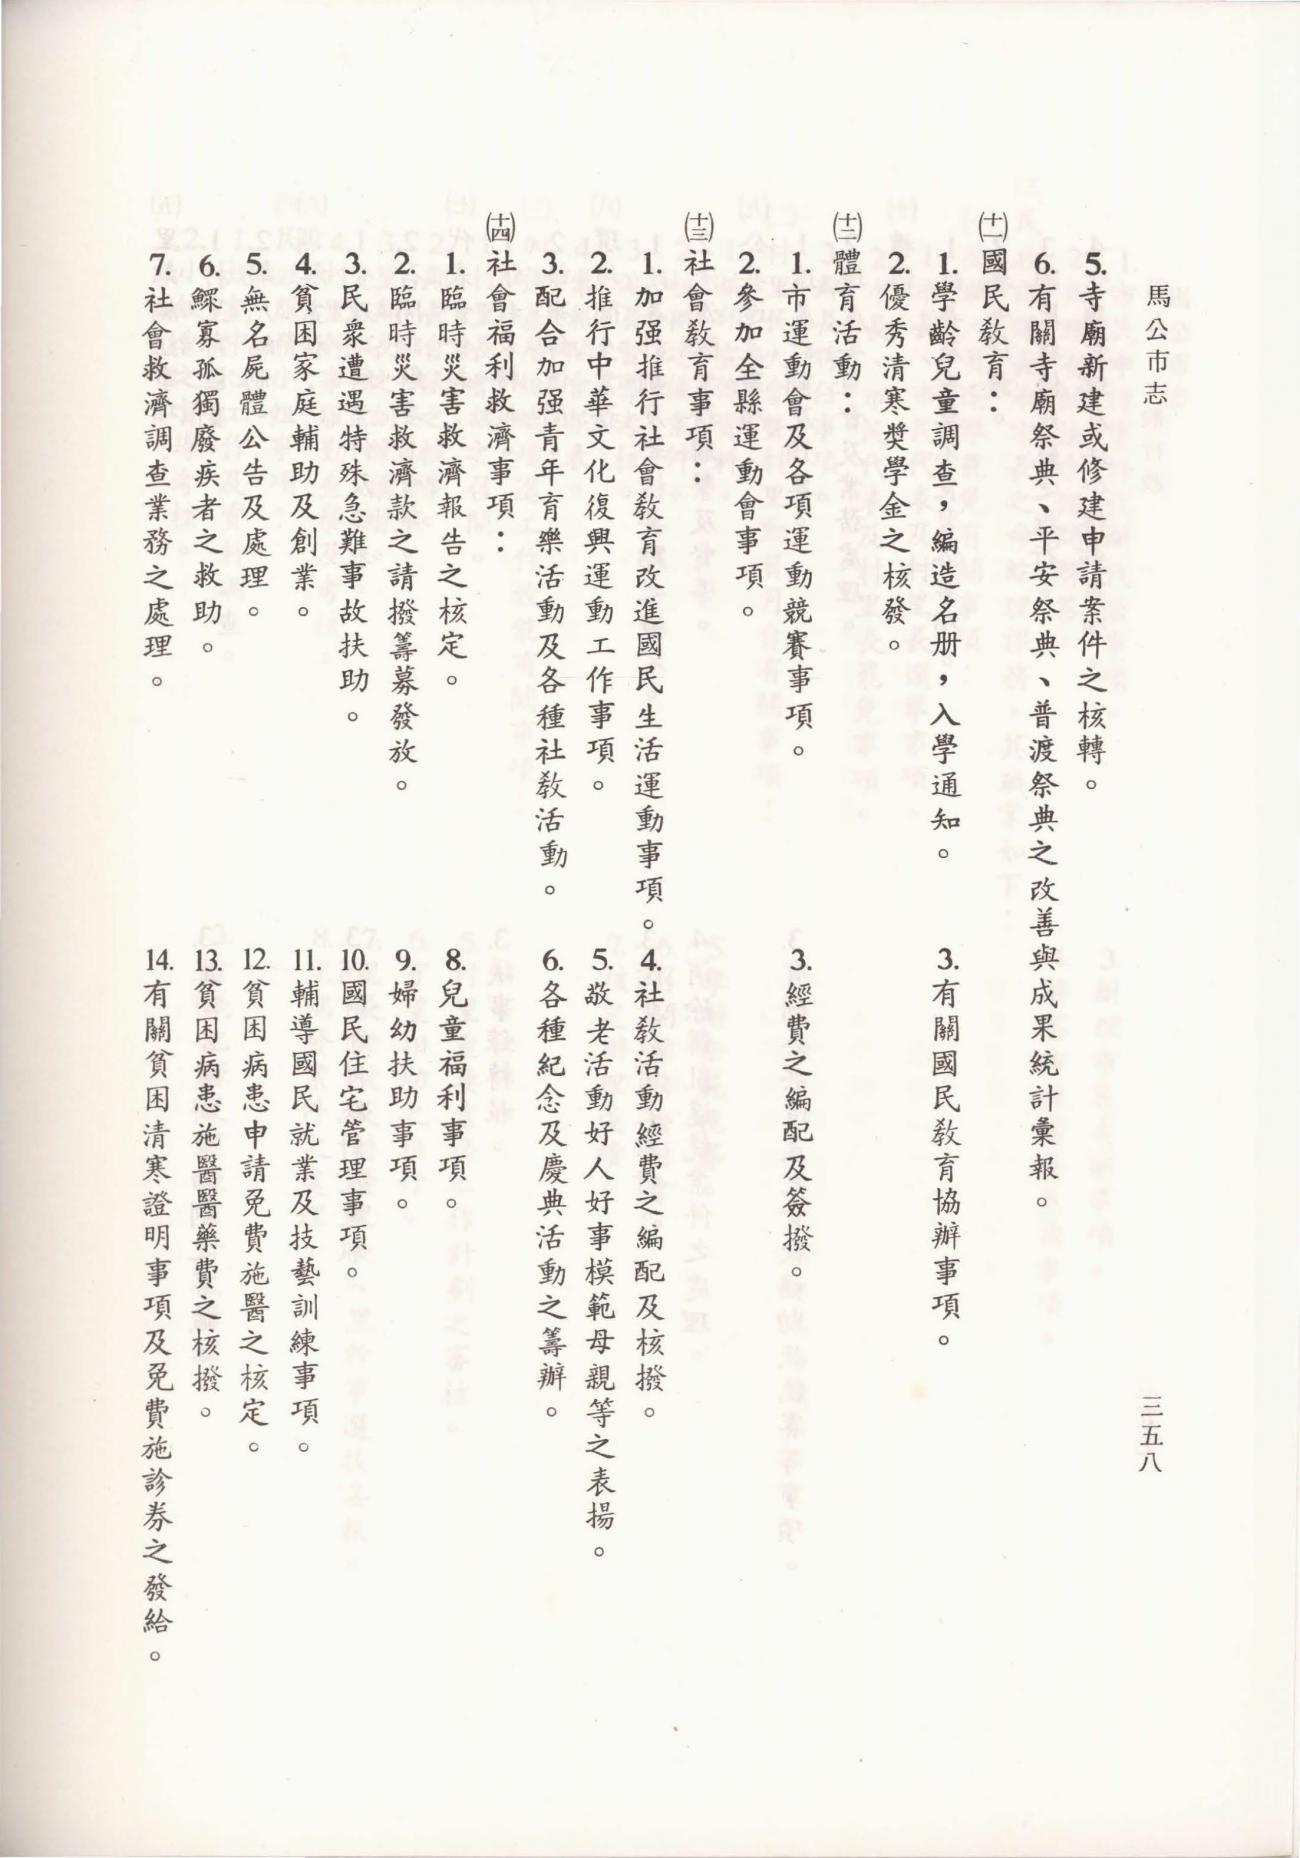 馬公市志
三五八
5.寺廟新建或修建申請案件之核轉。
6.有關寺廟祭典、平安祭典、普渡祭典之改善與成果統計彙報。
㈩㈠國民敎育：
1.學齡兒童調查，編造名册，入學通知。
3.有關國民敎育協辦事項。
2.優秀清寒奬學金之核發。
㈩㈡體育活動：
1.市運動會及各項運動競賽事項。
3.經費之編配及簽撥。
2.參加全縣運動會事項。
㈩㈢社會敎育事項：
1.加强推行社會敎育改進國民生活運動事項。
4.社敎活動經費之編配及核撥。
2.推行中華文化復興運動工作事項。
5.敬老活動好人好事模範母親等之表揚。
3.配合加强青年育樂活動及各種社敎活動。
6.各種紀念及慶典活動之籌辦。
㈩㈣社會福利救濟事項：
1.臨時災害救濟報告之核定。
8.兒童福利事項。
2.臨時災害救濟款之請撥籌募發放。
9.婦幼扶助事項。
3.民衆遭遇特殊急難事故扶助。
10.國民住宅管理事項。
4.貧困家庭輔助及創業。
11.輔導國民就業及技藝訓練事項。
5.無名屍體公告及處理。
12.貧困病患申請免費施醫之核定。
6.鰥寡孤獨廢疾者之救助。
13.貧困病患施醫醫藥費之核撥。
7.社會救濟調查業務之處理。
14.有關貧困清寒證明事項及免費施診券之發給。